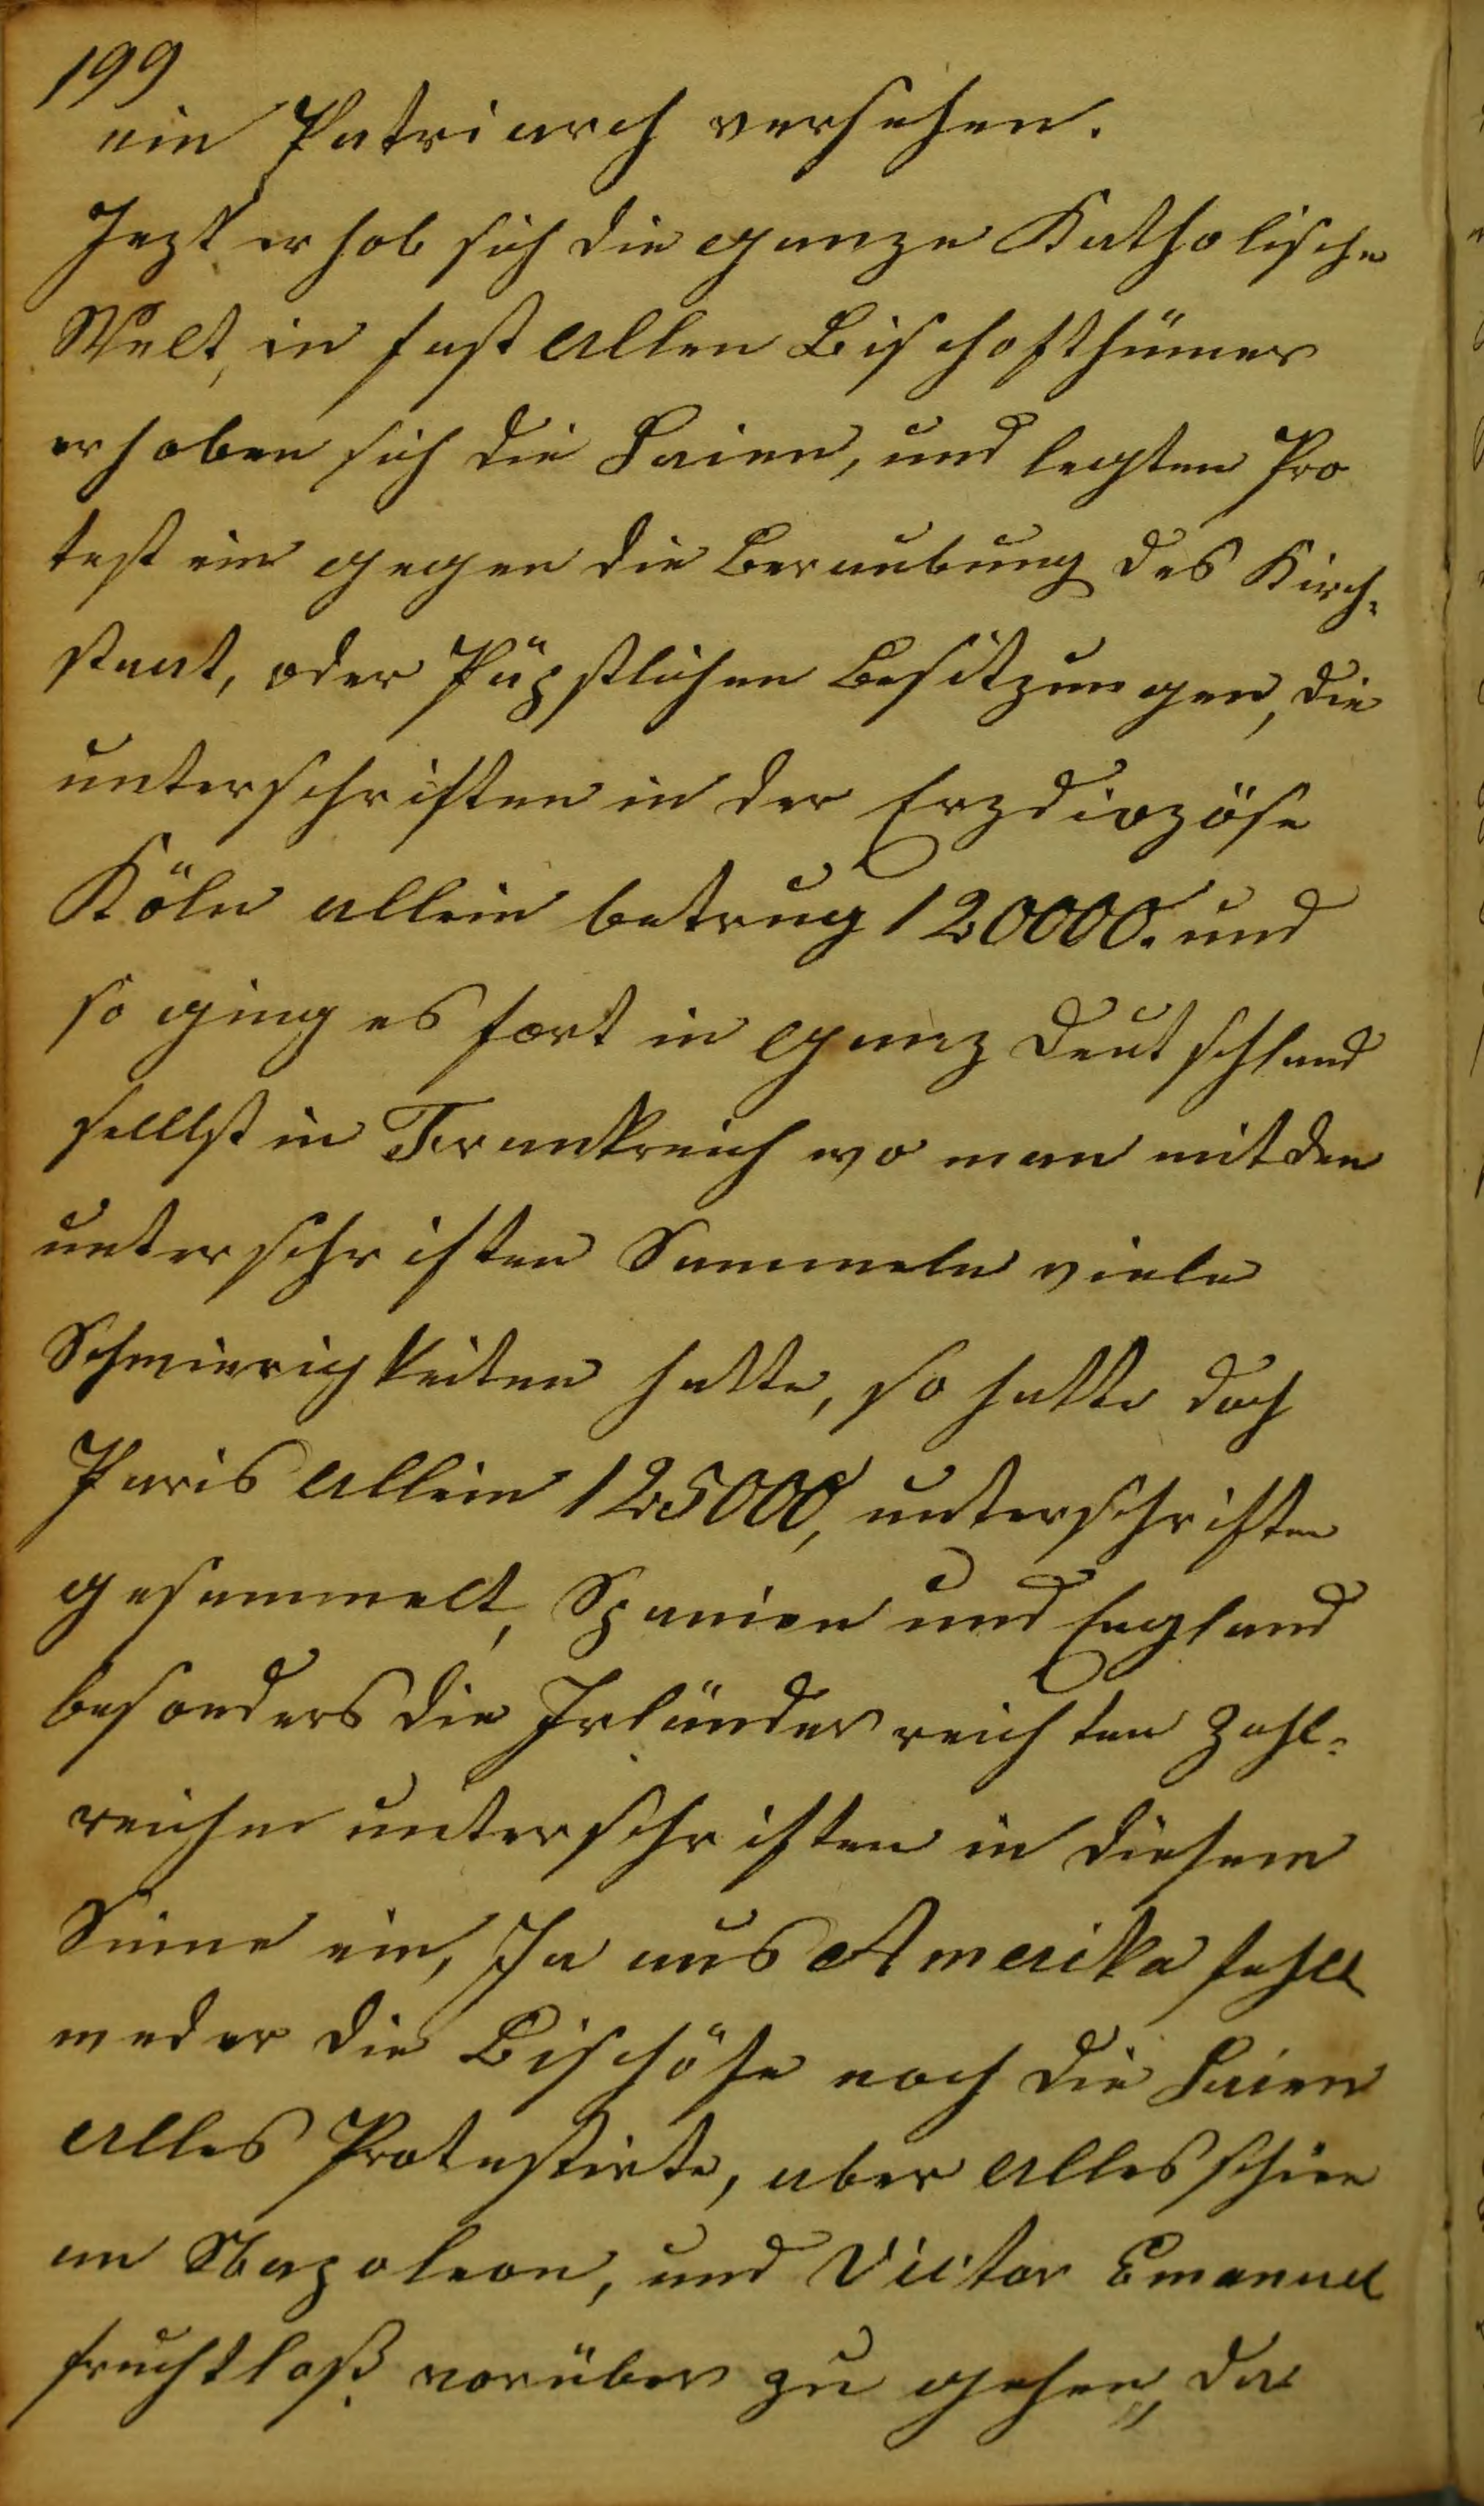 199
ein Patriarch versehen.
Jezt erhob sich die ganze Katholische
Welt, in fast allen Bischofthümer
erhoben sich die Laien, und legten Pro
test ein gegen die Beraubung des Kirch=
staat, oder Päpstlichen Besitzungen, die
unterschriften in der Erzdiozöse
Köln allein betrug 120000. und
so ging es fort in ganz Deutschland
selllst in Frankreich wo man mit den
unterschriften Sammeln viele
Schwierigkeiten hatte, so hatte doch
Paris allein 125000, unterschriften
gesammelt, Spanien und England
besonders die Irländer reichten Zahl=
reichen unterschriften in diesem
Sinne ein, Ja aus Amerika fehlt
weder die Bischöfe noch die Laien
alles Protestirte, aber alles schien
an Napoleon, und Victor Emanuel
fruchtloß vorüber zu gehen, da